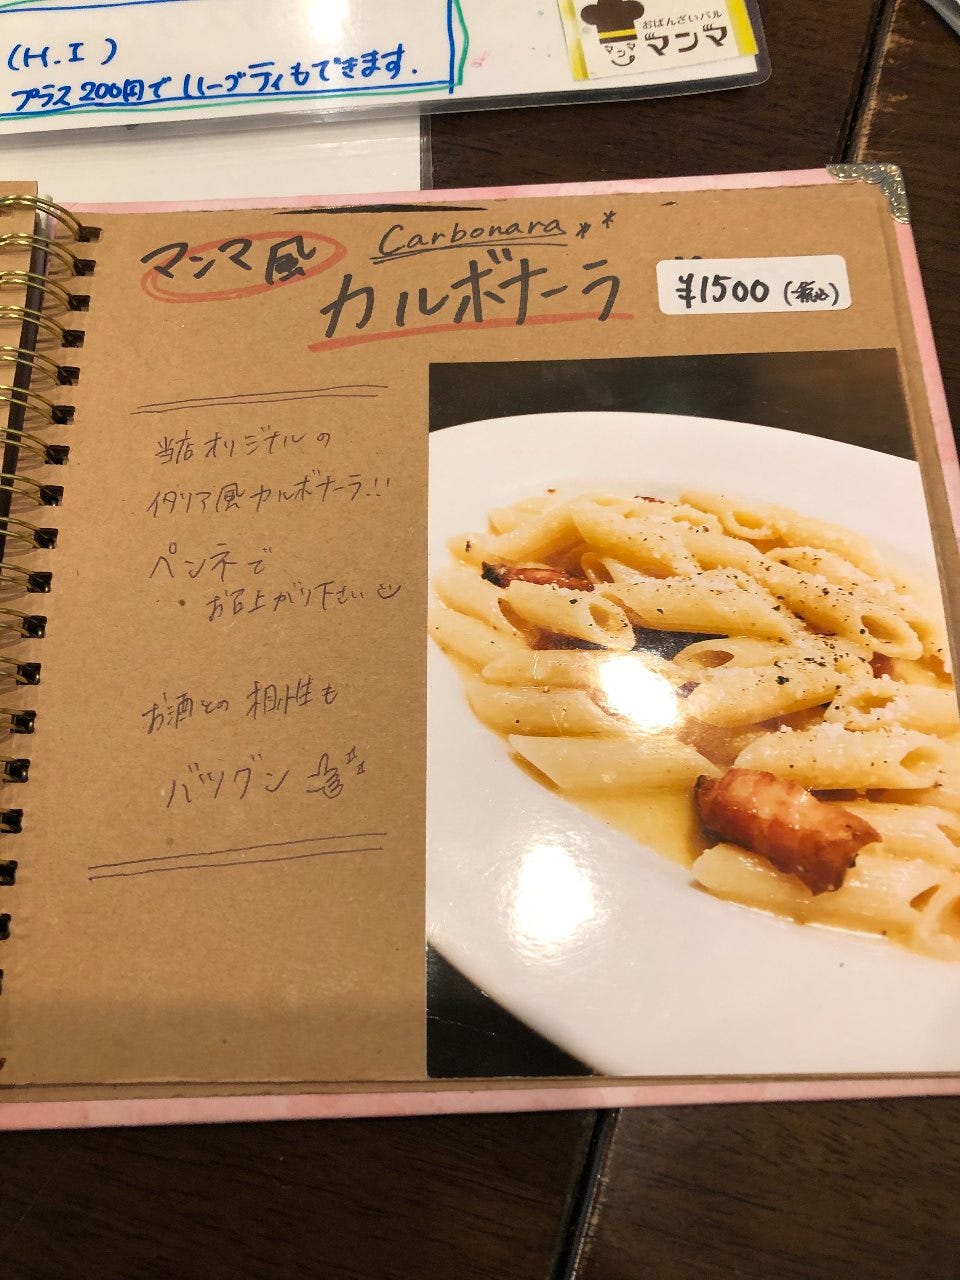 (H.I)
プラス200円でハーブティもできます.
おばんざいバル
マンマ
マンマ
マンマ風
Carbonara
カルボナーラ
¥1500 (税込)
当店オリジナルの
イタリア風カルボナーラ!!
ペンネで
お召上がり下さい
お酒との相性も
バツグン